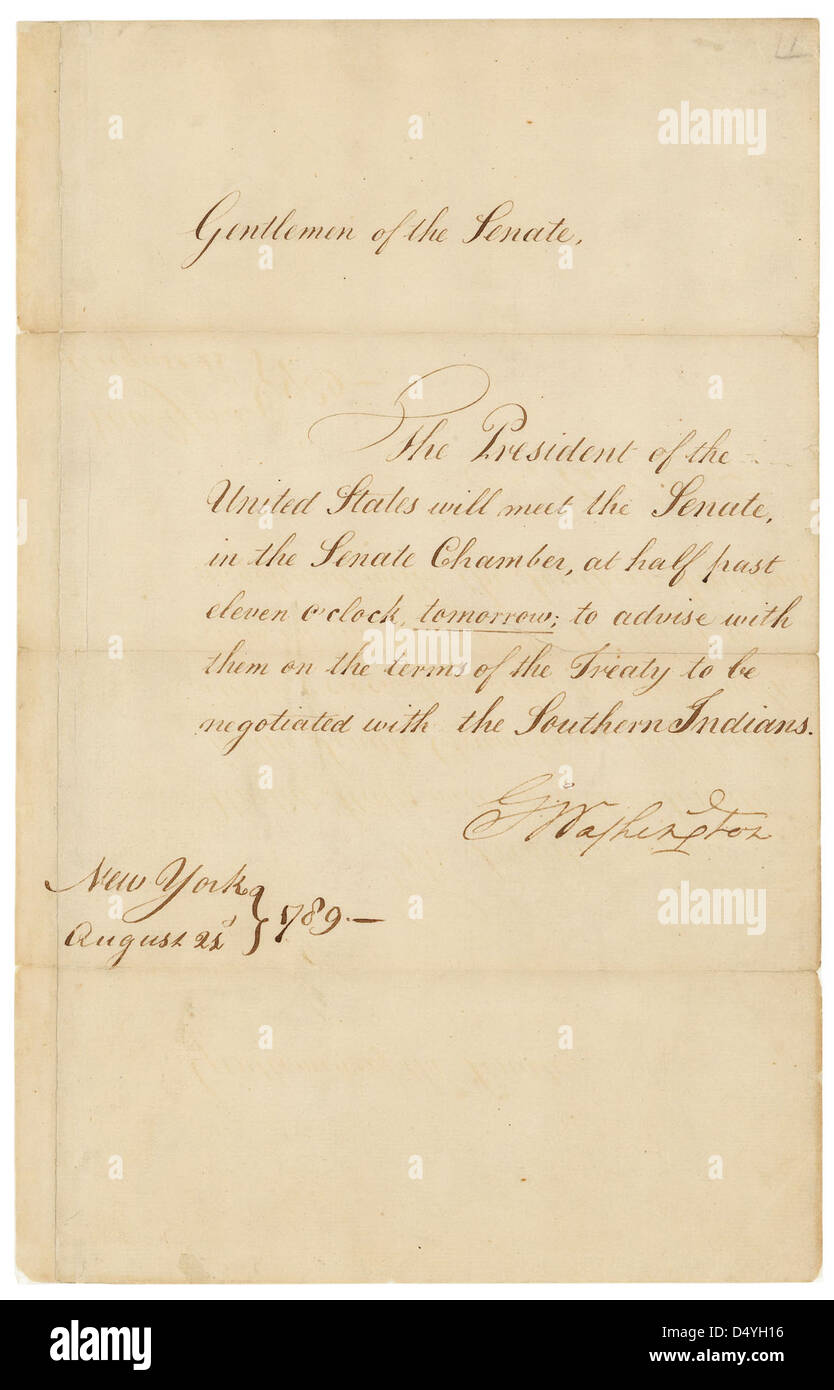 Gentlemen of the Senate,
The President of the
United States will meet the Senate,
in the Senate Chamber, at half past
eleven o'clock, tomorrow; to advise with
them on the terms of the Treaty to be
negotiated with the Southern Indians.
G:Washington
New York
August 21st } 1789.—
alamy
Image ID: D4YH16
www.alamy.com